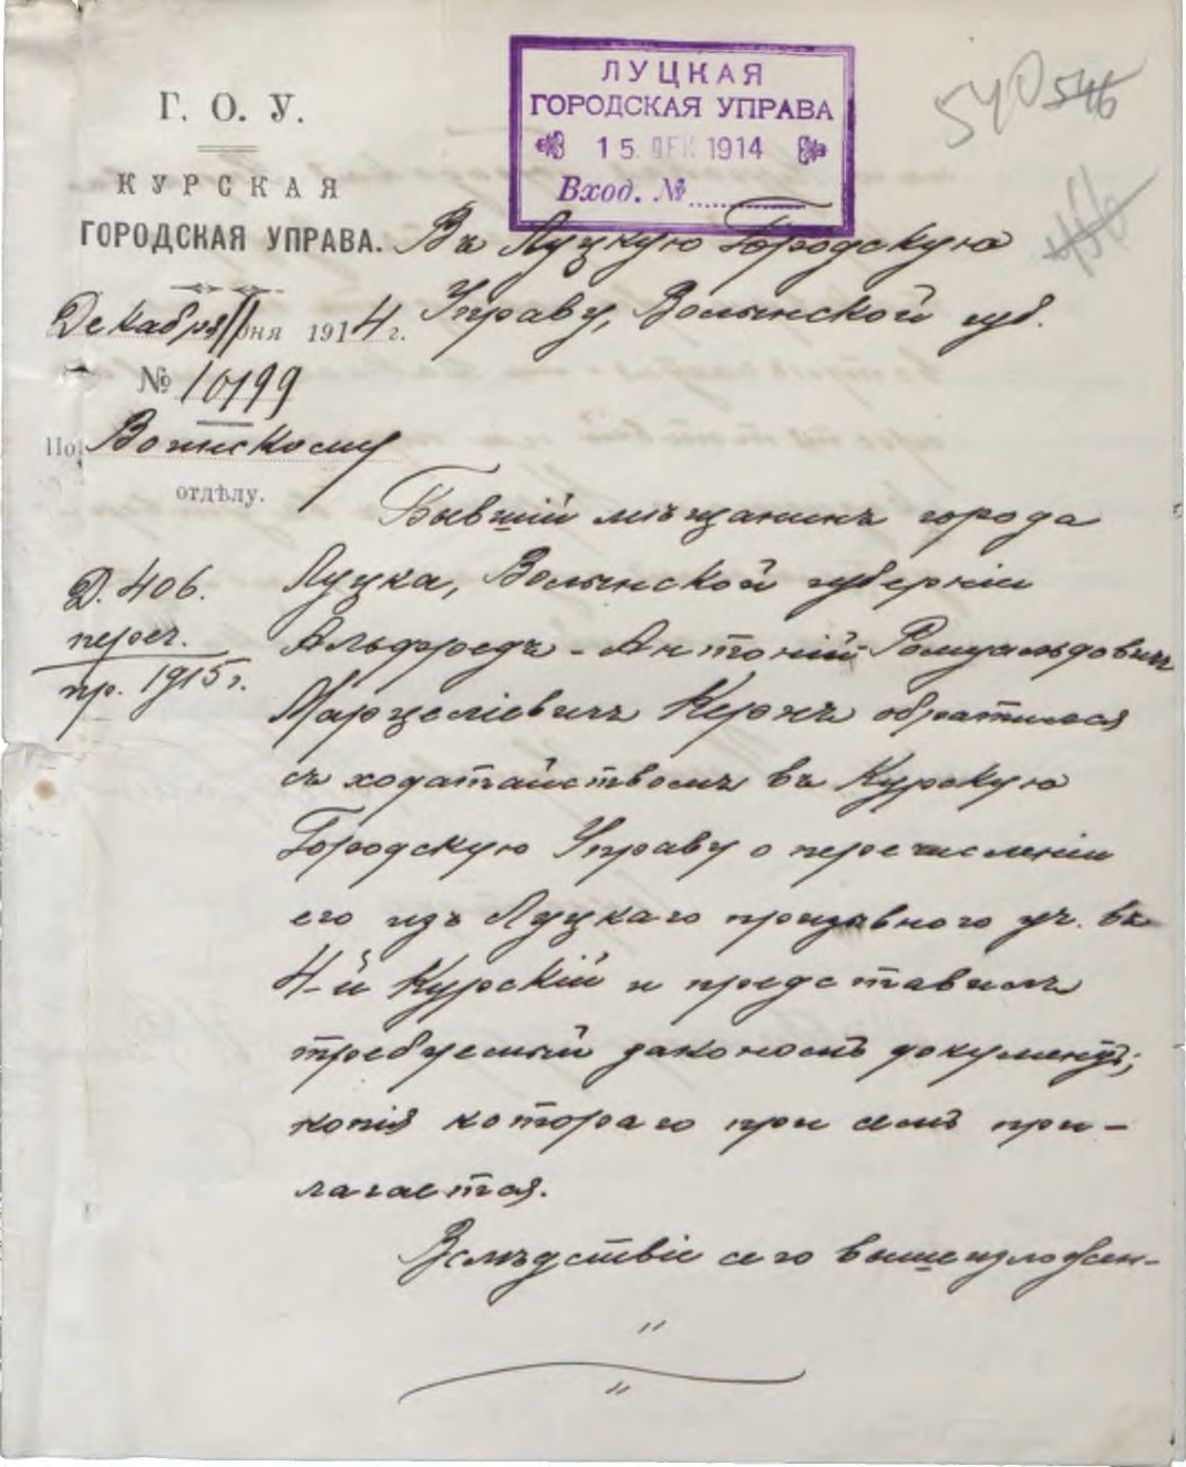 Г. О. У.
КУРСКАЯ
ГОРОДСКАЯ УПРАВА.
Декабря 11 дня 1914 г.
№ 10199
По Воинскому
отдѣлу.
ЛУЦКАЯ
ГОРОДСКАЯ УПРАВА
15 ДЕК 1914
Вход. №
540 546
Въ Луцкую Городскую
Управу, Волынской губ.
Д. 406.
переч.
пр. 1915 г.
Бывшій мѣщанинъ города
Луцка, Волынской губерніи
Альфредъ-Антоній Ромуальдовичъ
Марцеліевичъ Кернъ обратился
съ ходатайствомъ въ Курскую
Городскую Управу о перечисленіи
его изъ Луцкаго призывного уч. въ
4-й Курскій и представилъ
требуемый закономъ документъ;
копія котораго при семъ при-
лагается.
Вслѣдствіе сего вышеизложен-